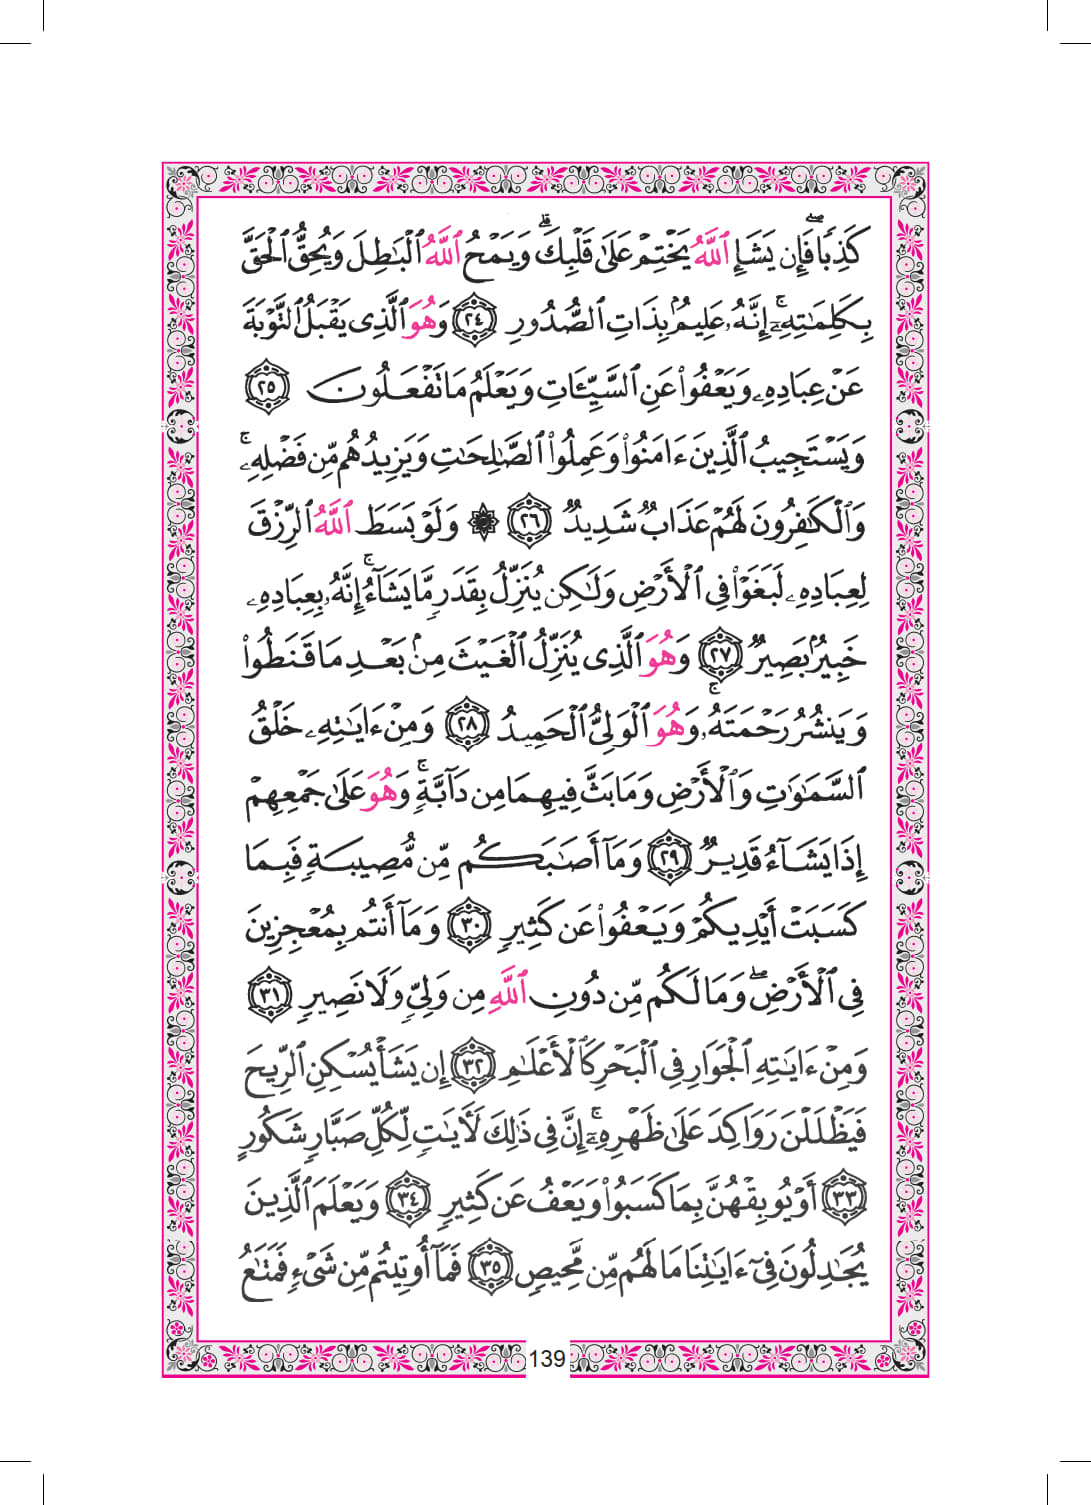 كَذِبًا ۖ فَإِن يَشَإِ ٱللَّهُ يَخْتِمْ عَلَىٰ قَلْبِكَ ۗ وَيَمْحُ ٱللَّهُ ٱلْبَـٰطِلَ وَيُحِقُّ ٱلْحَقَّ
بِكَلِمَـٰتِهِۦٓ ۚ إِنَّهُۥ عَلِيمٌۢ بِذَاتِ ٱلصُّدُورِ ٢٤ وَهُوَ ٱلَّذِى يَقْبَلُ ٱلتَّوْبَةَ
عَنْ عِبَادِهِۦ وَيَعْفُوا۟ عَنِ ٱلسَّيِّـَٔاتِ وَيَعْلَمُ مَا تَفْعَلُونَ ٢٥
وَيَسْتَجِيبُ ٱلَّذِينَ ءَامَنُوا۟ وَعَمِلُوا۟ ٱلصَّـٰلِحَـٰتِ وَيَزِيدُهُم مِّن فَضْلِهِۦ ۚ
وَٱلْكَـٰفِرُونَ لَهُمْ عَذَابٌ شَدِيدٌ ٢٦ ۞ وَلَوْ بَسَطَ ٱللَّهُ ٱلرِّزْقَ
لِعِبَادِهِۦ لَبَغَوْا۟ فِى ٱلْأَرْضِ وَلَـٰكِن يُنَزِّلُ بِقَدَرٍ مَّا يَشَآءُ ۚ إِنَّهُۥ بِعِبَادِهِۦ
خَبِيرٌۢ بَصِيرٌ ٢٧ وَهُوَ ٱلَّذِى يُنَزِّلُ ٱلْغَيْثَ مِنۢ بَعْدِ مَا قَنَطُوا۟
وَيَنشُرُ رَحْمَتَهُۥ ۚ وَهُوَ ٱلْوَلِىُّ ٱلْحَمِيدُ ٢٨ وَمِنْ ءَايَـٰتِهِۦ خَلْقُ
ٱلسَّمَـٰوَٰتِ وَٱلْأَرْضِ وَمَا بَثَّ فِيهِمَا مِن دَآبَّةٍ ۚ وَهُوَ عَلَىٰ جَمْعِهِمْ
إِذَا يَشَآءُ قَدِيرٌ ٢٩ وَمَآ أَصَـٰبَكُم مِّن مُّصِيبَةٍ فَبِمَا
كَسَبَتْ أَيْدِيكُمْ وَيَعْفُوا۟ عَن كَثِيرٍ ٣٠ وَمَآ أَنتُم بِمُعْجِزِينَ
فِى ٱلْأَرْضِ ۖ وَمَا لَكُم مِّن دُونِ ٱللَّهِ مِن وَلِىٍّ وَلَا نَصِيرٍ ٣١
وَمِنْ ءَايَـٰتِهِ ٱلْجَوَارِ فِى ٱلْبَحْرِ كَٱلْأَعْلَـٰمِ ٣٢ إِن يَشَأْ يُسْكِنِ ٱلرِّيحَ
فَيَظْلَلْنَ رَوَاكِدَ عَلَىٰ ظَهْرِهِۦٓ ۚ إِنَّ فِى ذَٰلِكَ لَـَٔايَـٰتٍ لِّكُلِّ صَبَّارٍ شَكُورٍ
٣٣ أَوْ يُوبِقْهُنَّ بِمَا كَسَبُوا۟ وَيَعْفُ عَن كَثِيرٍ ٣٤ وَيَعْلَمَ ٱلَّذِينَ
يُجَـٰدِلُونَ فِىٓ ءَايَـٰتِنَا مَا لَهُم مِّن مَّحِيصٍ ٣٥ فَمَآ أُوتِيتُم مِّن شَىْءٍ فَمَتَـٰعُ
139